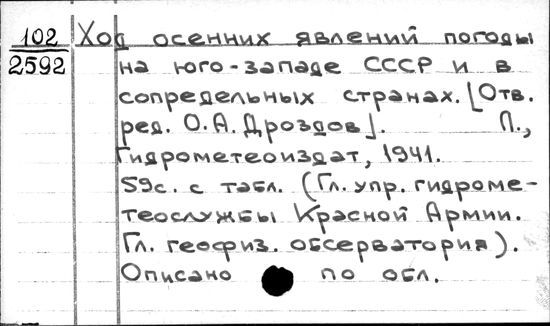 102
2592
Ход осенних явлений погоды
на юго-западе СССР и в
сопредельных странах. [Отв.
ред. О.А. Дроздов]. Л.,
Гидрометеоиздат, 1941.
59с. с табл. (Гл. упр. гидроме-
теослужбы Красной Армии.
Гл. геофиз. обсерватория).
Описано по обл.